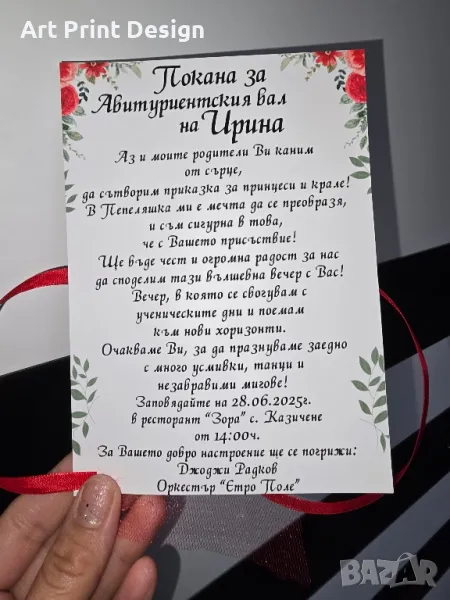 Art Print Design
Покана за
Абитуриентския бал
на Ирина
Аз и моите родители Ви каним
от сърце,
да сътворим приказка за принцеси и крале!
В Пепеляшка ми е мечта да се преобразя,
и съм сигурна в това,
че с Вашето присъствие!
Ще бъде чест и огромна радост за нас
да споделим тази вълшебна вечер с Вас!
Вечер, в която се сбогувам с
ученическите дни и поемам
към нови хоризонти.
Очакваме Ви, за да празнуваме заедно
с много усмивки, танци и
незабравими мигове!
Заповядайте на 28.06.2025г.
в ресторант “Зора” с. Казичене
от 14:00ч.
За Вашето добро настроение ще се погрижи:
Джоджи Радков
Оркестър “Етро Поле”
bazar